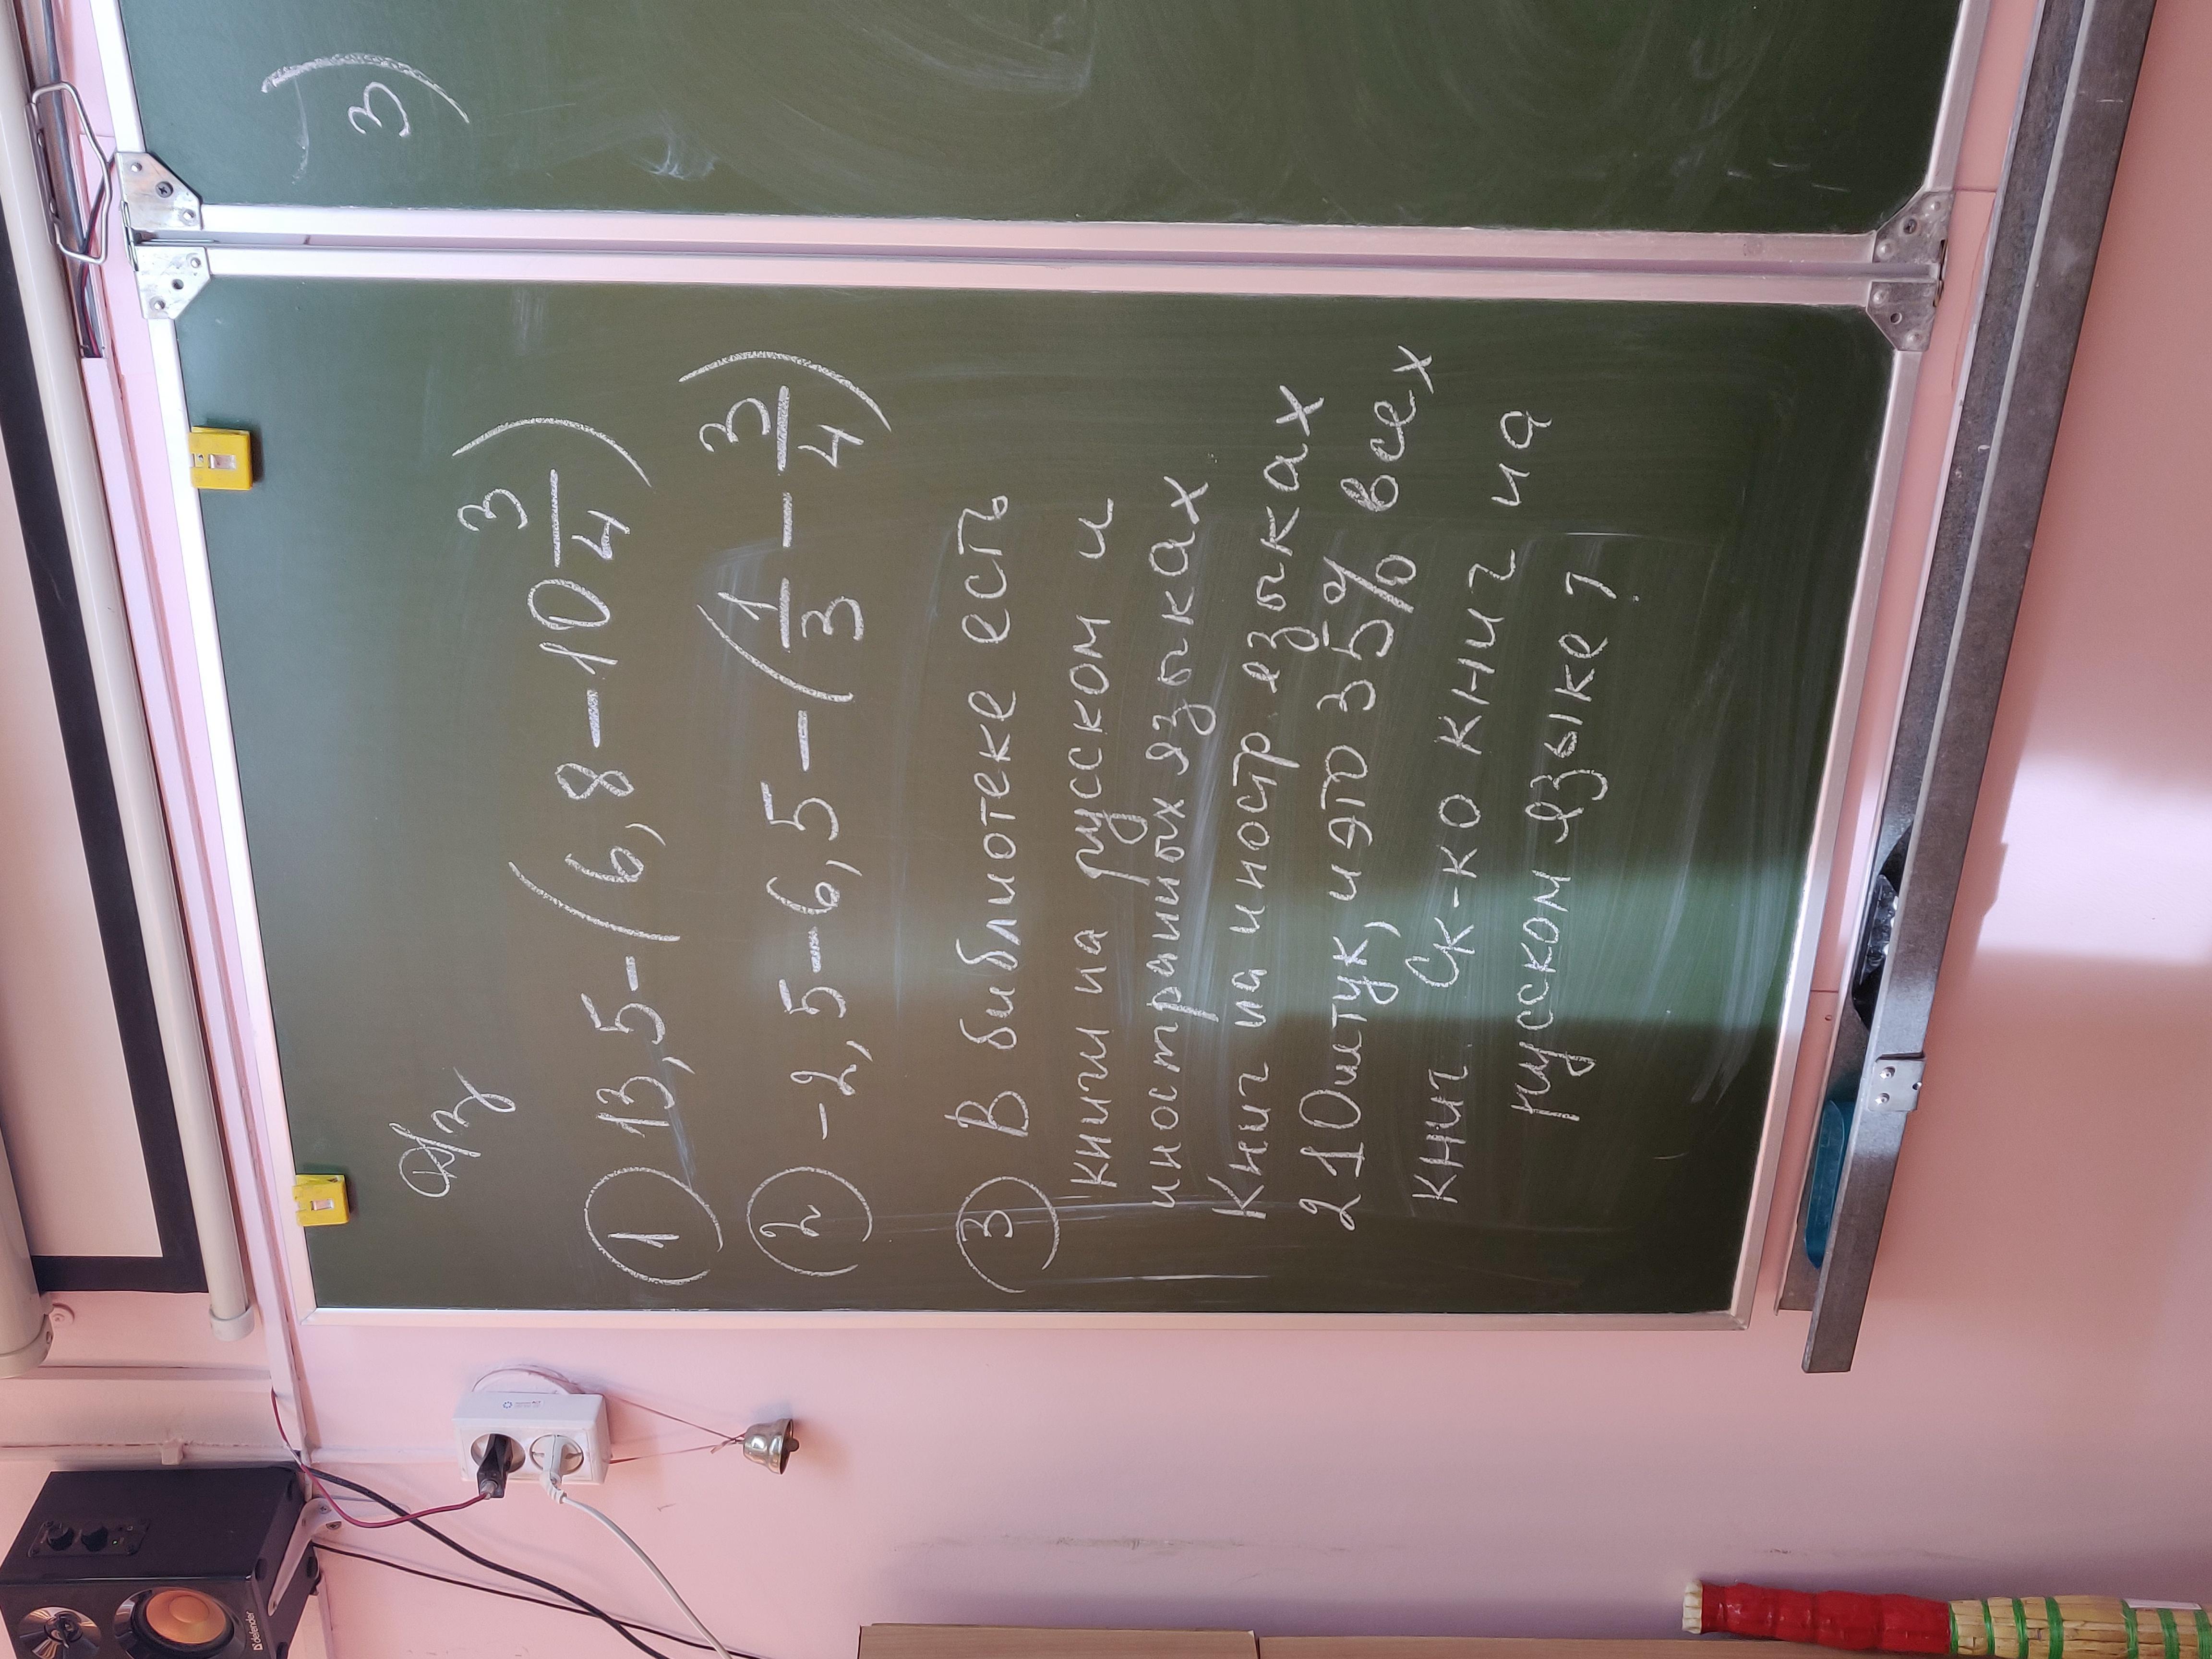 Д/з
① 13,5-(6,8-10 3/4)
② -2,5-6,5-(1/3 - 3/4)
③ В библиотеке есть
книги на русском и
иностранных языках
Книг на иностр языках
210 штук, и это 35% всех
книг. Ск-ко книг на
русском языке?
3)
defender